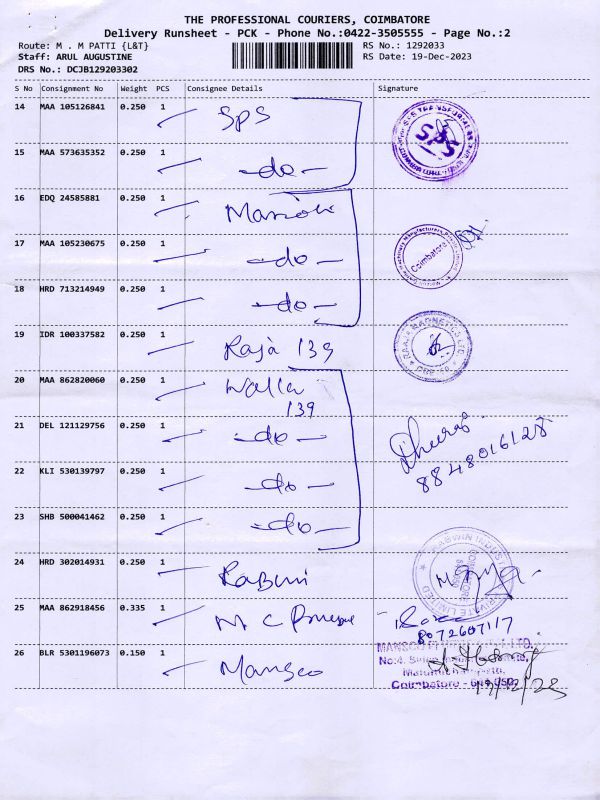 THE PROFESSIONAL COURIERS, COIMBATORE
Delivery Runsheet - PCK - Phone No.:0422-3505555 - Page No.:2
Route: M . M PATTI {L&T}
RS No.: 1292033
Staff: ARUL AUGUSTINE
RS Date: 19-Dec-2023
DRS No.: DCJB129203302
S No Consignment No Weight PCS Consignee Details Signature
14 MAA 105126841 0.250 1 SPS
SPS
15 MAA 573635352 0.250 1 -do-
16 EDQ 24585881 0.250 1
17 MAA 105230675 0.250 1 -do-
Coimbatore
18 HRD 713214949 0.250 1 -do-
19 IDR 100337582 0.250 1 Raja 139
20 MAA 862820060 0.250 1 Walla
139
21 DEL 121129756 0.250 1 -do-
Dheeraj
8848016128
22 KLI 530139797 0.250 1 -do-
23 SHB 500041462 0.250 1 -do-
24 HRD 302014931 0.250 1
PRIVATE LIMITED
25 MAA 862918456 0.335 1 M C
8072607117
26 BLR 5301196073 0.150 1 Mansco
MANSCO
Coimbatore